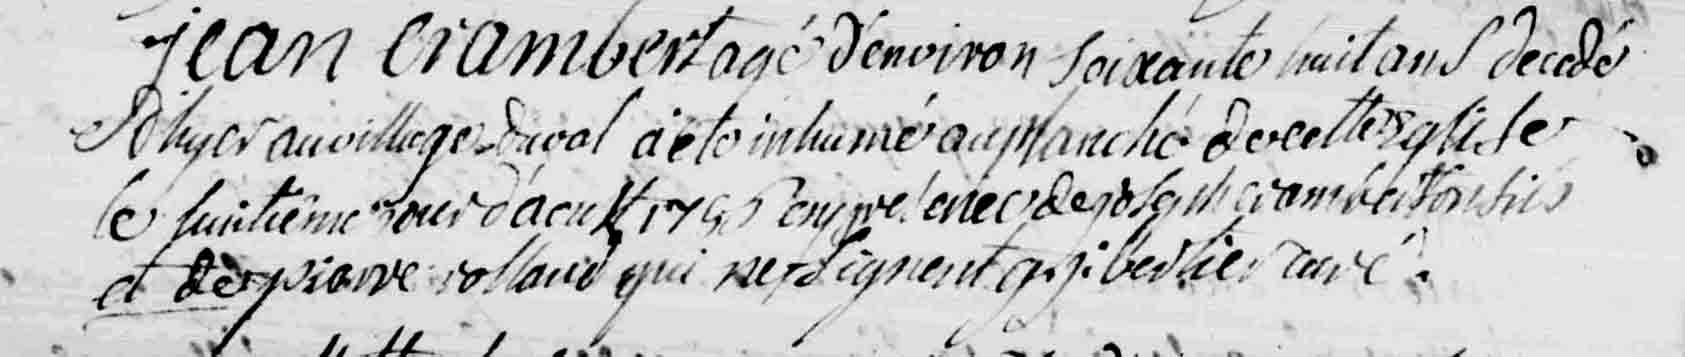 jean crambert agé d'environ soixante huit ans decedé
d'hyer au village duval à eté inhumé au planché de cette eglise
le huitième jour d'aoust en presence de joseph crambert son fils
et de pierre rolland qui ne signent g. gibertier curé.